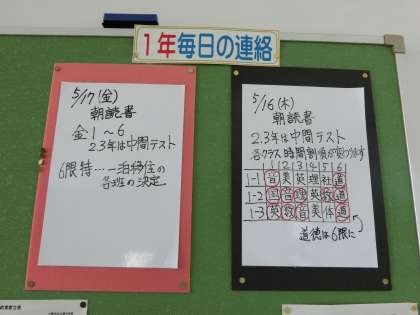 1年毎日の連絡
5/17(金)
朝読書
金1～6
2.3年は中間テスト
6限特…一泊移住の
各班の決定
5/16(木)
朝読書
2.3年は中間テスト
各クラス時間割順が変わります
1 2 3 4 5 6
1-1 音 美 英 理 社 道
1-2 国 音 理 英 数 道
1-3 英 数 音 美 体 道
道徳は6限に